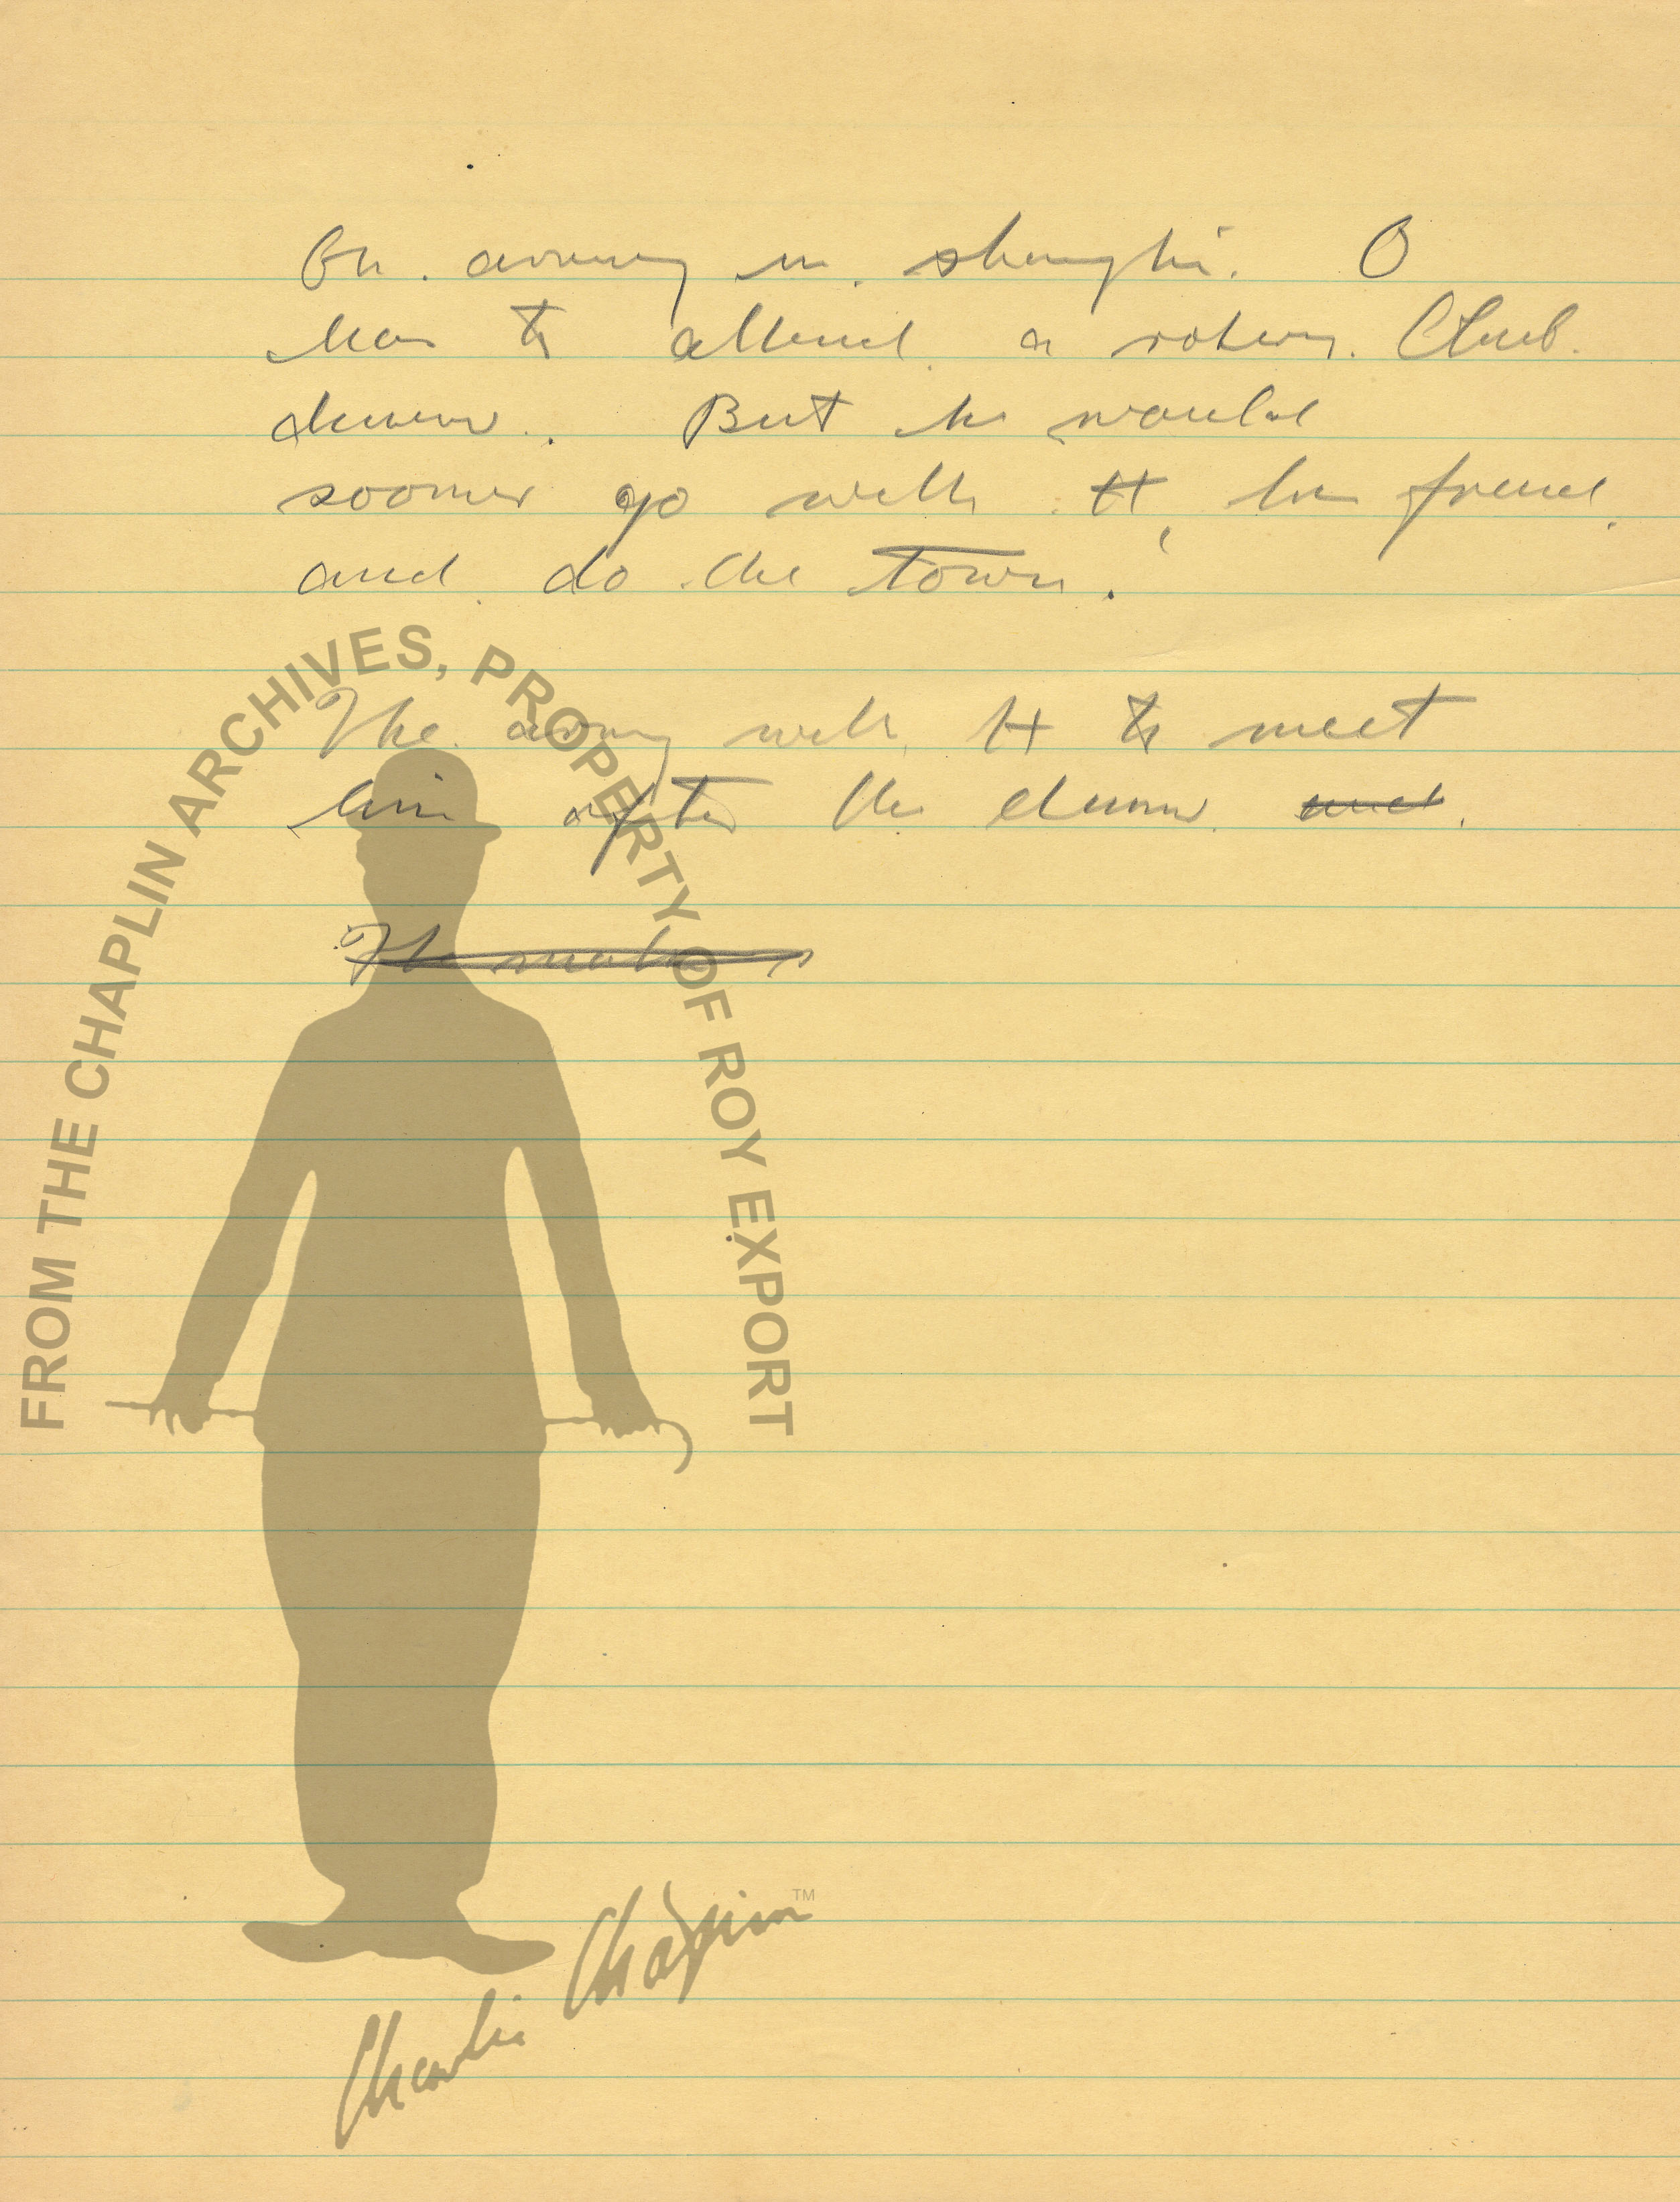 On. arriving in. shanghi. O
has to attend. a rotary. Club.
dinner.. But he would
soomer go with H, his friend.
and. do the town.
The. arrang with. H to meet
him after the dinner. and.
The
FROM THE CHAPLIN ARCHIVES, PROPERTY OF ROY EXPORT
Charlie Chaplin™